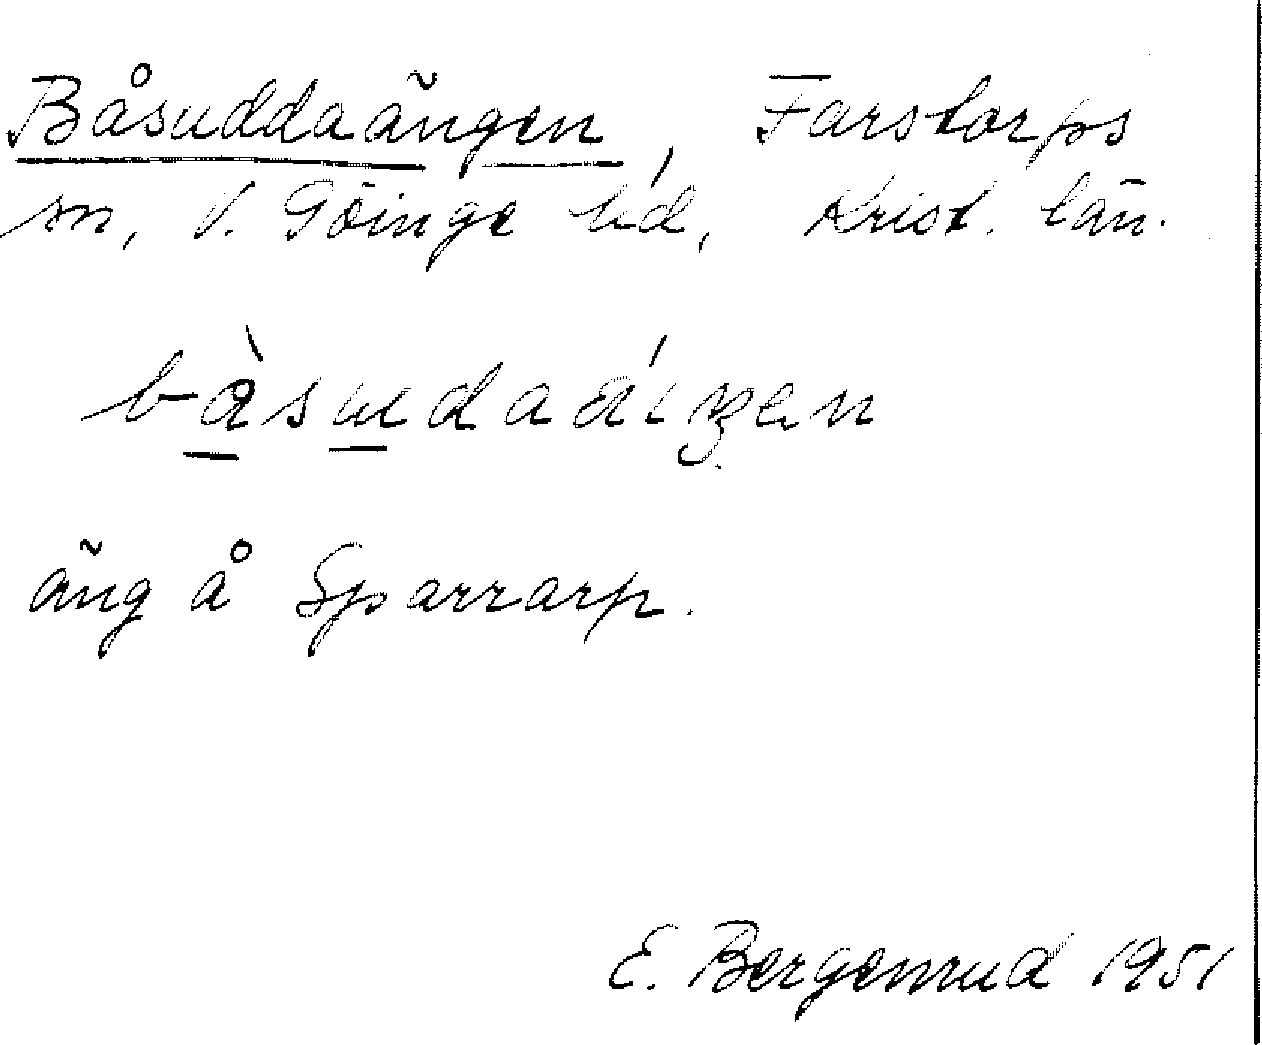 Båsuddaängen, Farstorps
sn, V. Göinge hd, Krist. län.
bàsudaáiŋen
äng å Sparrarp.
E. Bergenrud 1951